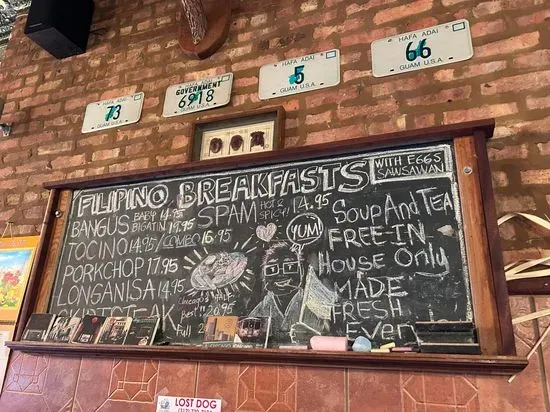 HAFA ADAI
73
GUAM U.S.A.
HAFA ADAI
GOVERNMENT
6918
GUAM U.S.A.
HAFA ADAI
5
GUAM U.S.A.
HAFA ADAI
66
GUAM U.S.A.
FILIPINO BREAKFASTS
WITH EGGS
SAWSAWAN
BANGUS BABY 14.95
BIGATIN 19.95
TOCINO 14.95 / COMBO 16.95
PORKCHOP 17.95
LONGANISA 14.95
SPAM HOT & SPICY! 14.95
YUM!
Chicago's
Best
20.95
Full
SOUP AND TEA
FREE-IN
HOUSE ONLY
MADE
FRESH
LOST DOG